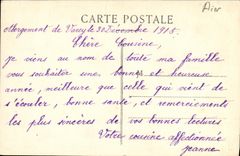 Ain
CARTE POSTALE
Allergement de Varey le 30 Décembre 1915.
Chère Cousine,
je viens au nom de toute ma famille
vous souhaiter une bonne et heureuse
année, meilleure que celle qui vient de
s'écouler, bonne santé, et remerciements
les plus sincères de vos bonnes lectures
Votre cousine affectionnée
Jeanne